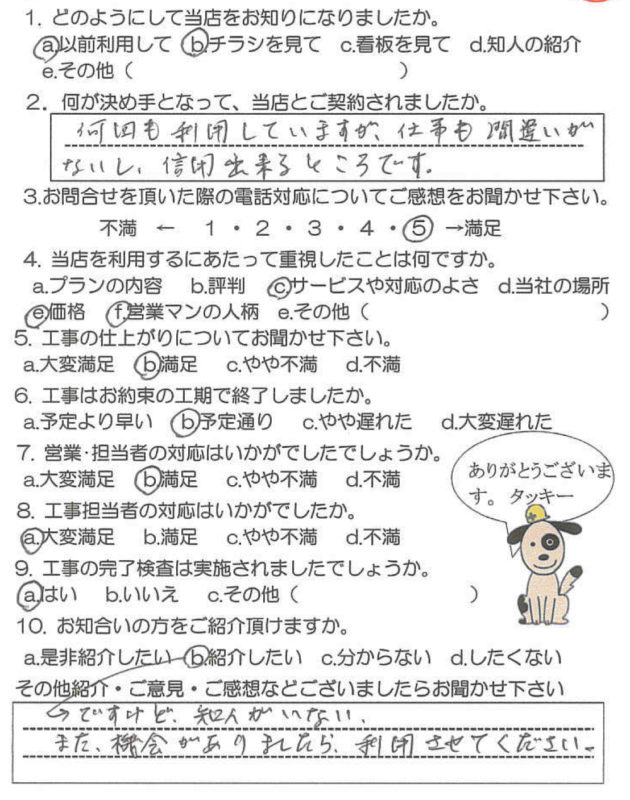 1. どのようにして当店をお知りになりましたか。
a.以前利用して b.チラシを見て c.看板を見て d.知人の紹介
e.その他（ ）
2. 何が決め手となって、当店とご契約されましたか。
何回も利用していますが、仕事も間違いが
ないし、信用出来るところです。
3.お問合せを頂いた際の電話対応についてご感想をお聞かせ下さい。
不満 ← 1・2・3・4・5 →満足
4. 当店を利用するにあたって重視したことは何ですか。
a.プランの内容 b.評判 c.サービスや対応のよさ d.当社の場所
e.価格 f.営業マンの人柄 e.その他（ ）
5. 工事の仕上がりについてお聞かせ下さい。
a.大変満足 b.満足 c.やや不満 d.不満
6. 工事はお約束の工期で終了しましたか。
a.予定より早い b.予定通り c.やや遅れた d.大変遅れた
7. 営業・担当者の対応はいかがでしたでしょうか。
a.大変満足 b.満足 c.やや不満 d.不満
ありがとうございま
す。 タッキー
8. 工事担当者の対応はいかがでしたか。
a.大変満足 b.満足 c.やや不満 d.不満
9. 工事の完了検査は実施されましたでしょうか。
a.はい b.いいえ c.その他（ ）
10. お知合いの方をご紹介頂けますか。
a.是非紹介したい b.紹介したい c.分からない d.したくない
その他紹介・ご意見・ご感想などございましたらお聞かせ下さい
→ですけど、知人がいない、
また、機会がありましたら、利用させてください。